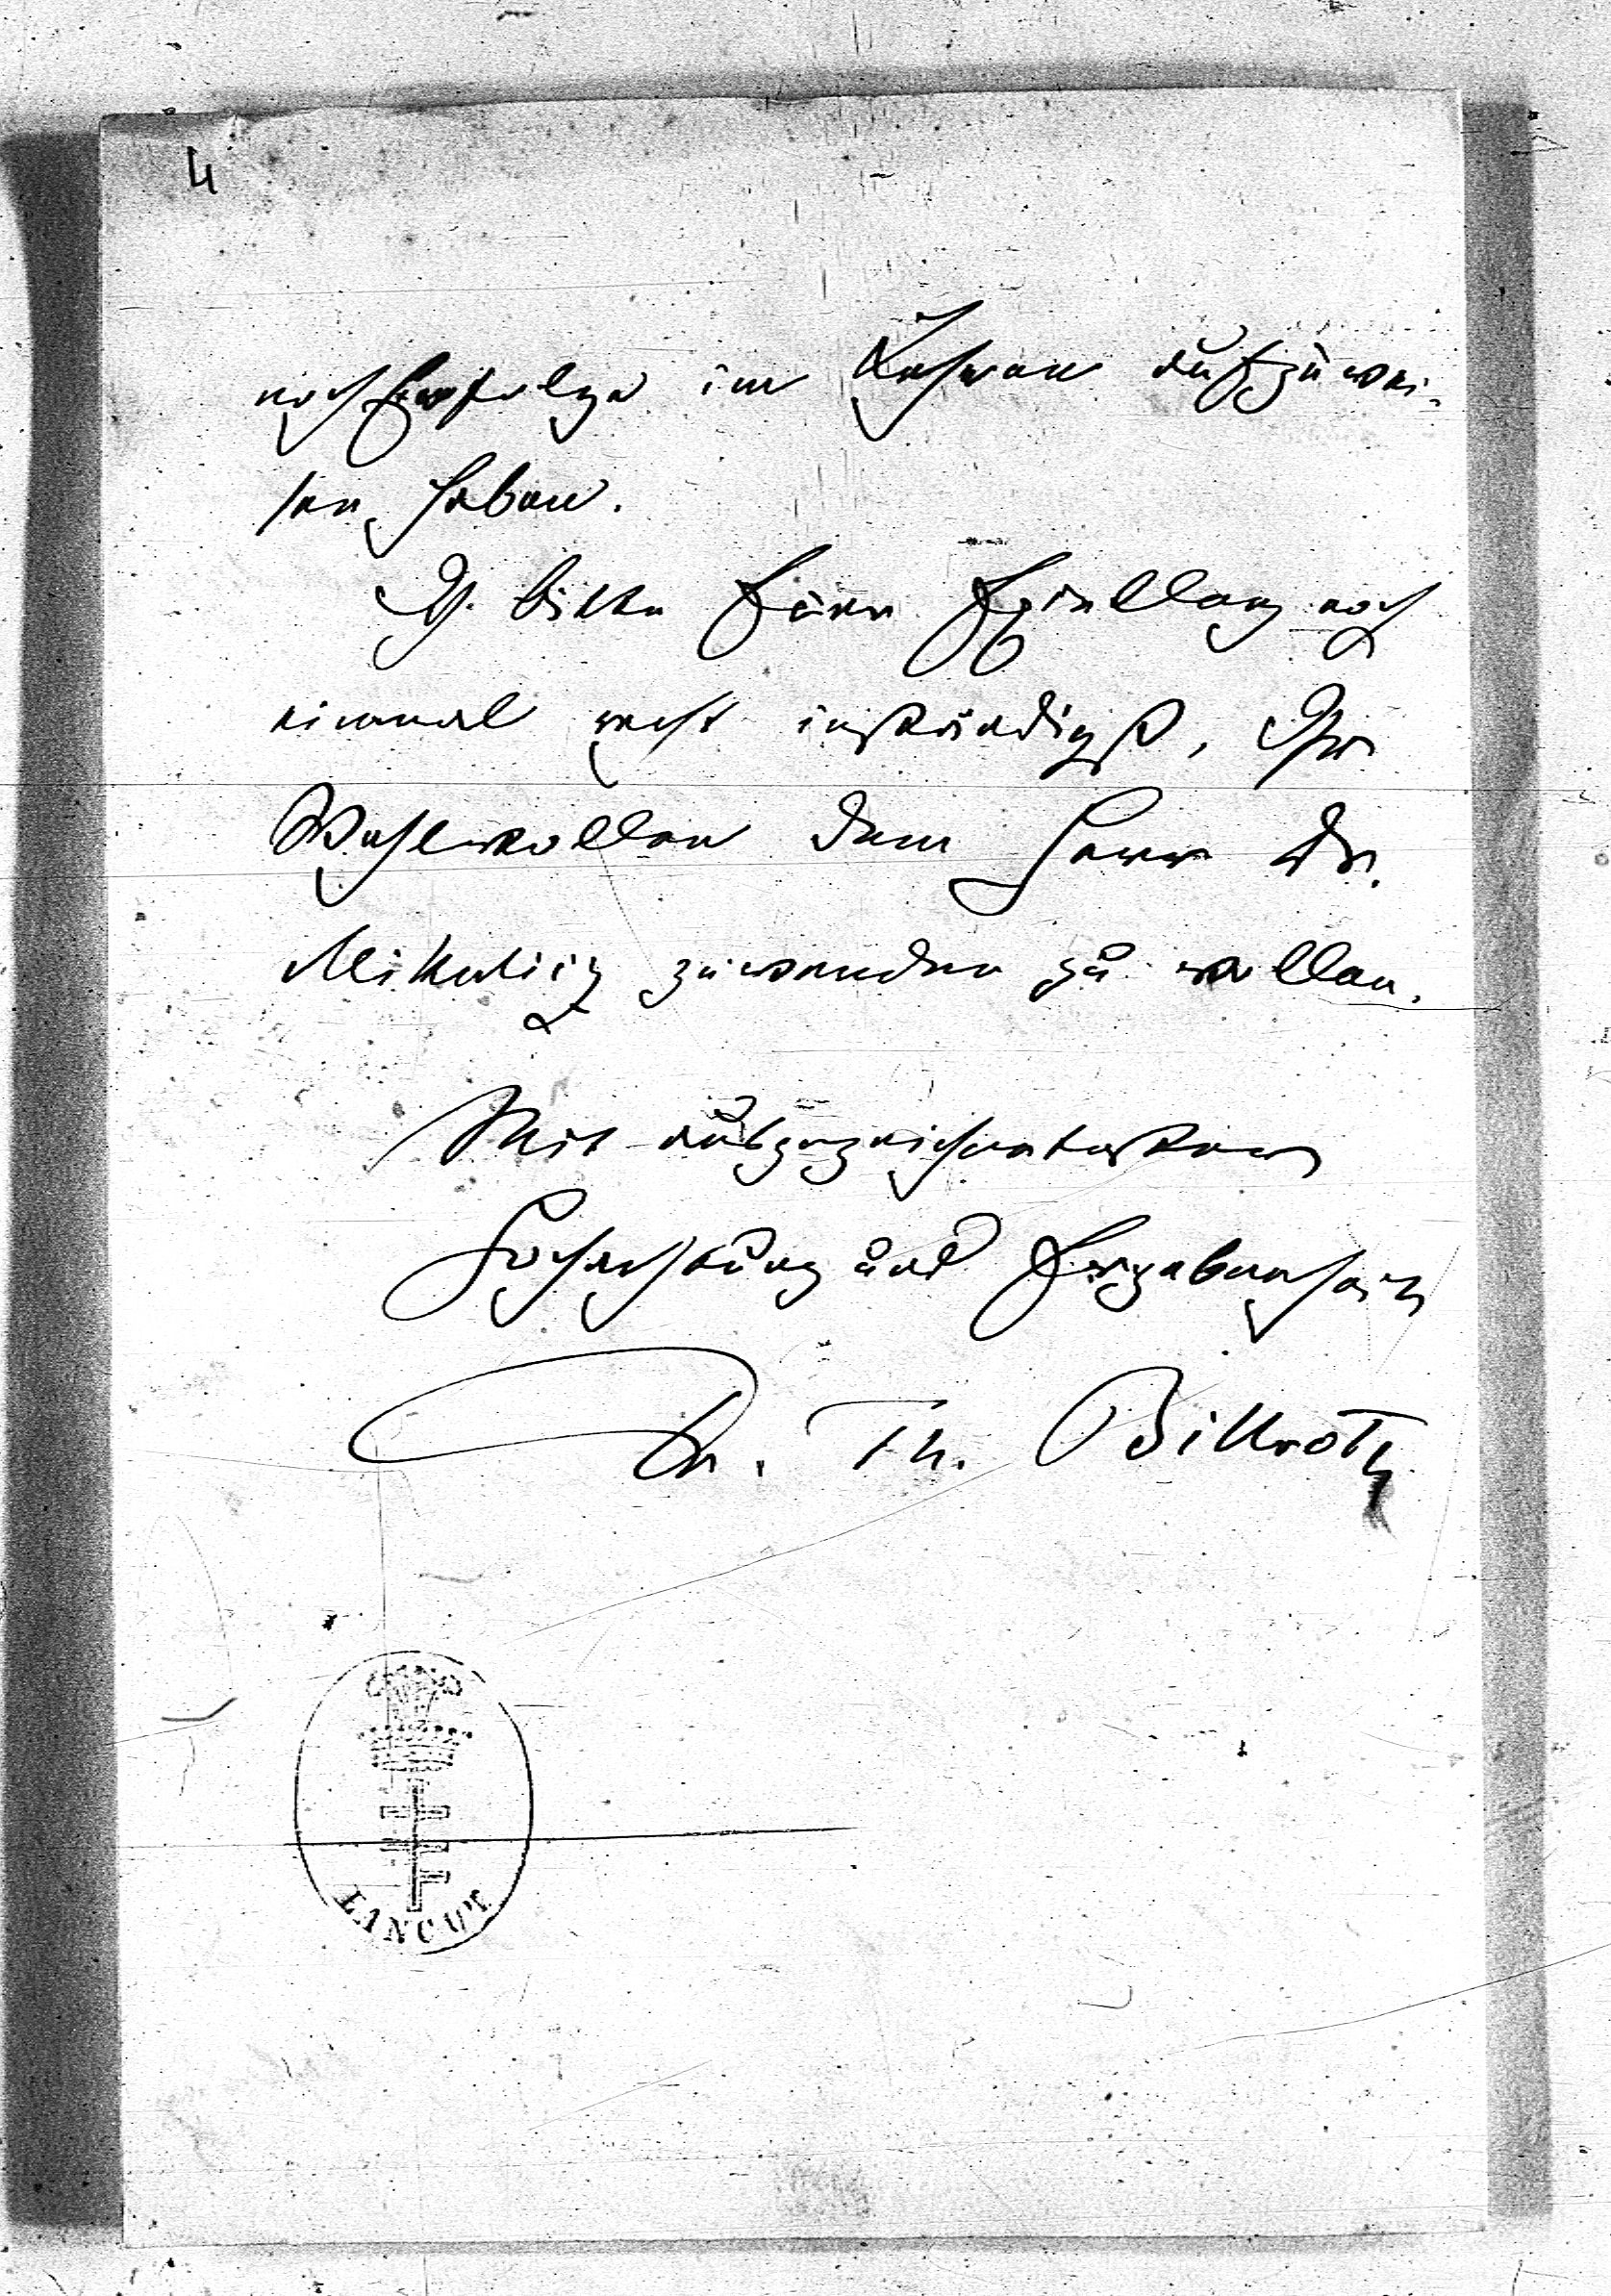 4
noch Erfolge im Lehren aufzuwei-
sen haben.
Ich bitte Euer Excellenz noch
einmal recht inständigst, Ihr
Wohlwollen dem Herrn Dr.
Mikulicz zuwenden zu wollen.
Mit ausgezeichnetester
Hochachtung und Ergebenheit
Dr. Th. Billroth
ŁAŃCUT